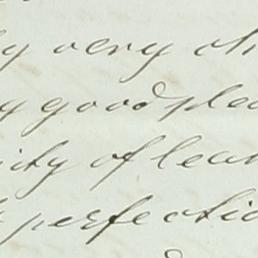 y very ch
y good plea
ity of lear
perfectio